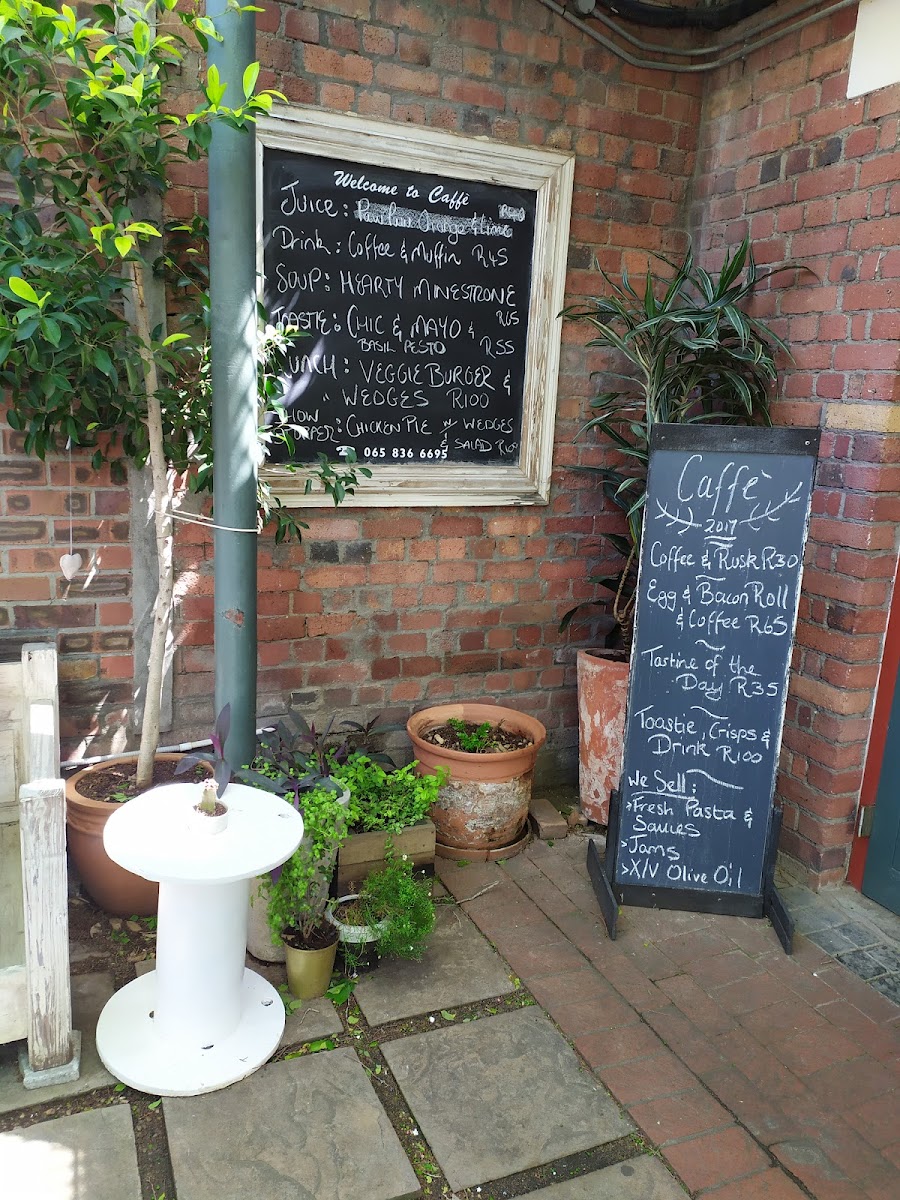 Welcome to Caffè
JUICE: Paw Paw Orange & Lime R40
Drink: Coffee & Muffin R45
SOUP: HEARTY MINESTRONE
R65
TOASTIE: CHIC & MAYO &
BASIL PESTO R55
LUNCH: VEGGIE BURGER &
" WEDGES R100
SHOW
STOPPER: CHICKEN PIE w WEDGES
& SALAD R100
065 836 6695
Caffè
2017
Coffee & Rusk R30
Egg & Bacon Roll
& Coffee R65
Tartine of the
Day R35
Toastie, Crisps &
Drink R100
We Sell:
>Fresh Pasta &
Sauces
>Jams
>X/V Olive Oil